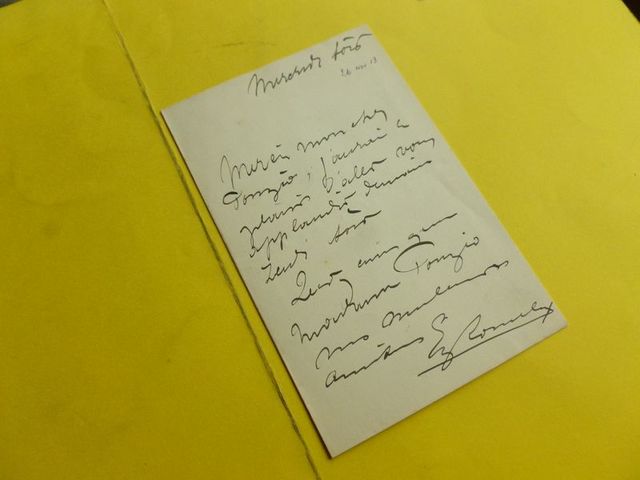 Mercredi soir
26 nov 13
Merci mon cher
Ponzio, j'aurai le
plaisir d'aller vous
applaudir demain
Jeudi soir
ainsi que
Madame Ponzio
nos meilleures
amitiés